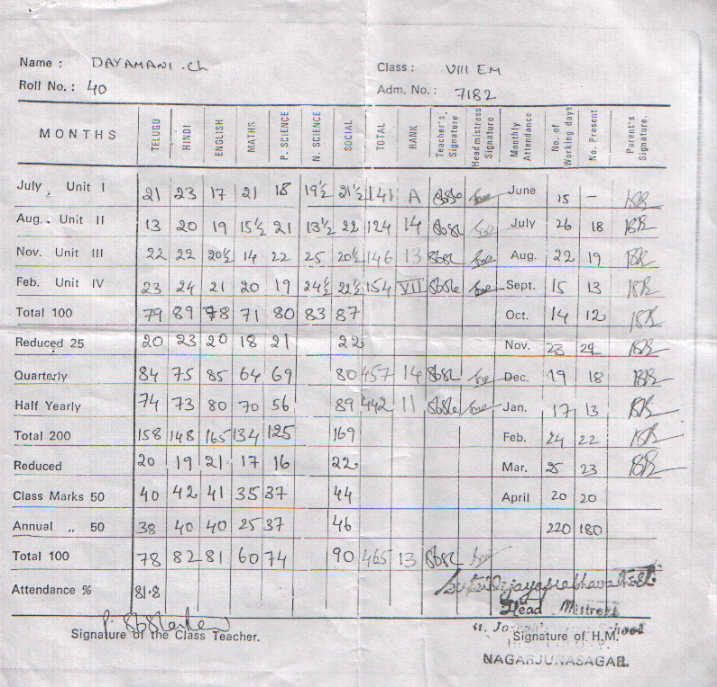 Name : DAYAMANI .Ch Class : VIII EM
Roll No. : 40 Adm. No. : 7182
MONTHS TELUGU HINDI ENGLISH MATHS P. SCIENCE N. SCIENCE SOCIAL TOTAL RANK Teacher's Signature Headmistress Signature Monthly Attendance No. of Working days No. Present Parent's Signature.
July, Unit I 21 23 17 21 18 19½ 21½ 141 A June 15 -
Aug. Unit II 13 20 19 15½ 21 13½ 22 124 14 July 26 18
Nov. Unit III 22 22 20½ 14 22 25 20½ 146 13 Aug. 22 19
Feb. Unit IV 23 24 21 20 19 24½ 22½ 154 VII Sept. 15 13
Total 100 79 89 78 71 80 83 87 Oct. 14 12
Reduced 25 20 23 20 18 21 22 Nov. 23
Quarterly 84 75 85 64 69 80 457 14 Dec. 19 18
Half Yearly 74 73 80 70 56 89 442 11 Jan. 17 13
Total 200 158 148 165 134 125 169 Feb. 24 22
Reduced 20 19 21 17 16 22 Mar. 25 23
Class Marks 50 40 42 41 35 37 44 April 20 20
Annual ,, 50 38 40 40 25 37 46 220 180
Total 100 78 82 81 60 74 90 465 13
Attendance % 81.8
Head Mistress
Signature of the Class Teacher. School
Signature of H.M.
NAGARJUNASAGAR.